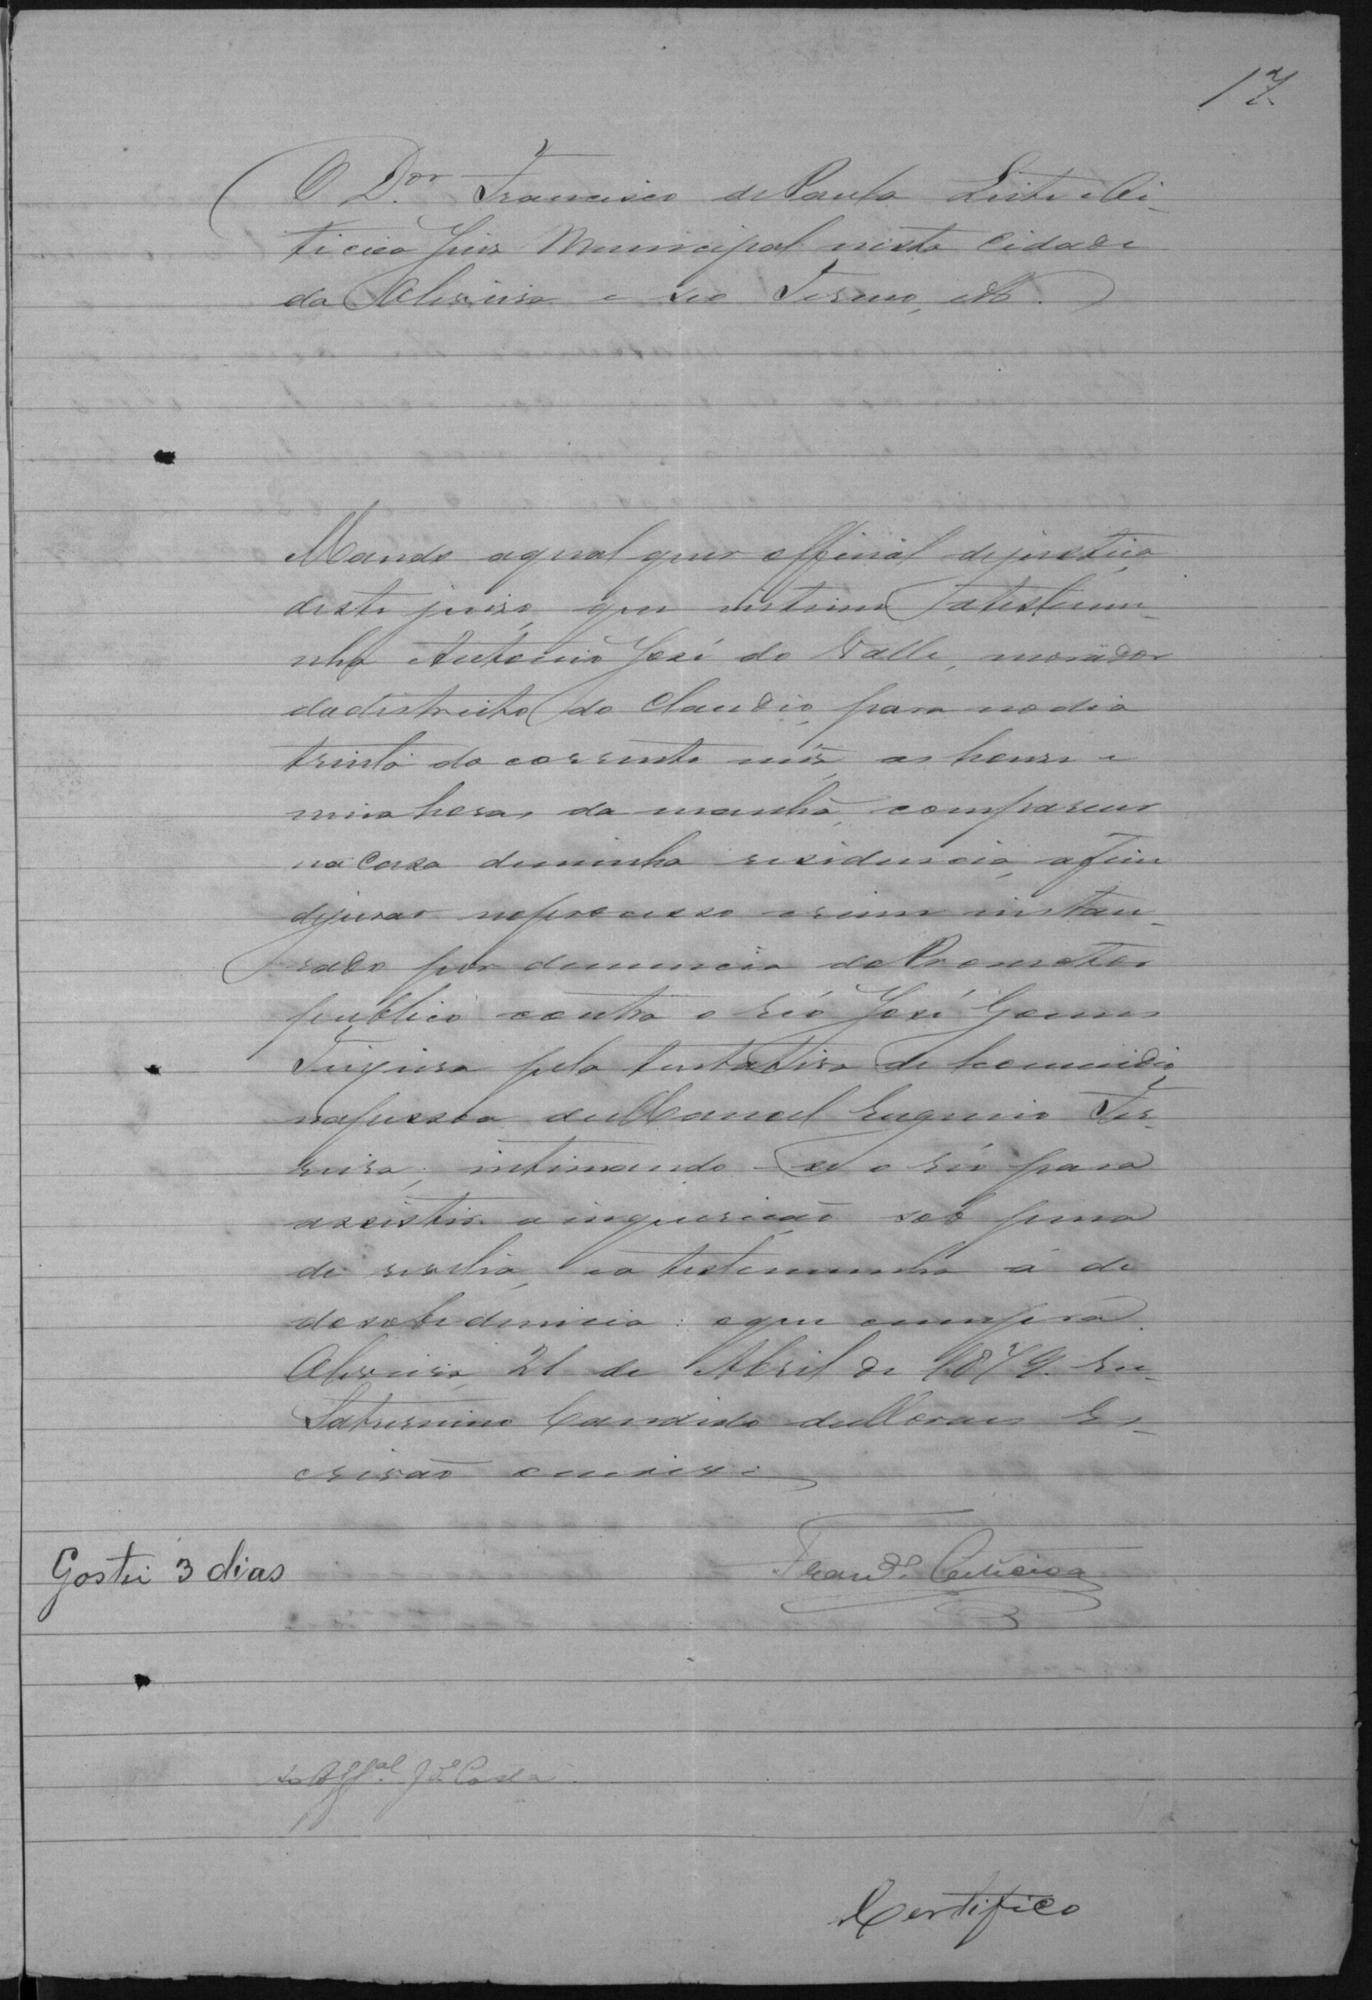 17
O Dor. Francisco de Paula Leite e Oi-
ticica Juiz Municipal nesta Cidade
da Oliveira e seo Termo, etc.
Mando aqual quer official dejustiça
deste juiso, que intime a testemu-
nha Antonio José do Valle, morador
dodistricto do Claudio, para nodia
trinta do corrente mês, as honse e
meia horas da manhã, comparecer
na Casa deminha residencia, afim
dejurar noprocesso crime instau-
rado por denuncia do Promotor
publico contra o réo José Gomes
pela tentativa de homicidio
napessoa deManoel Eugenio Fer-
reira, intimando-se o réo para
assistir a inquirição sob pena
de revelia, e a testemunha á de
desobediencia: oque cumprá.
Oliveira, 21 de Abril de 1879. Eu
Saturnino Candido deMoraes Es-
crivão escrevi
Gastei 3 dias
Ao Offal. Je Costa
Certifico